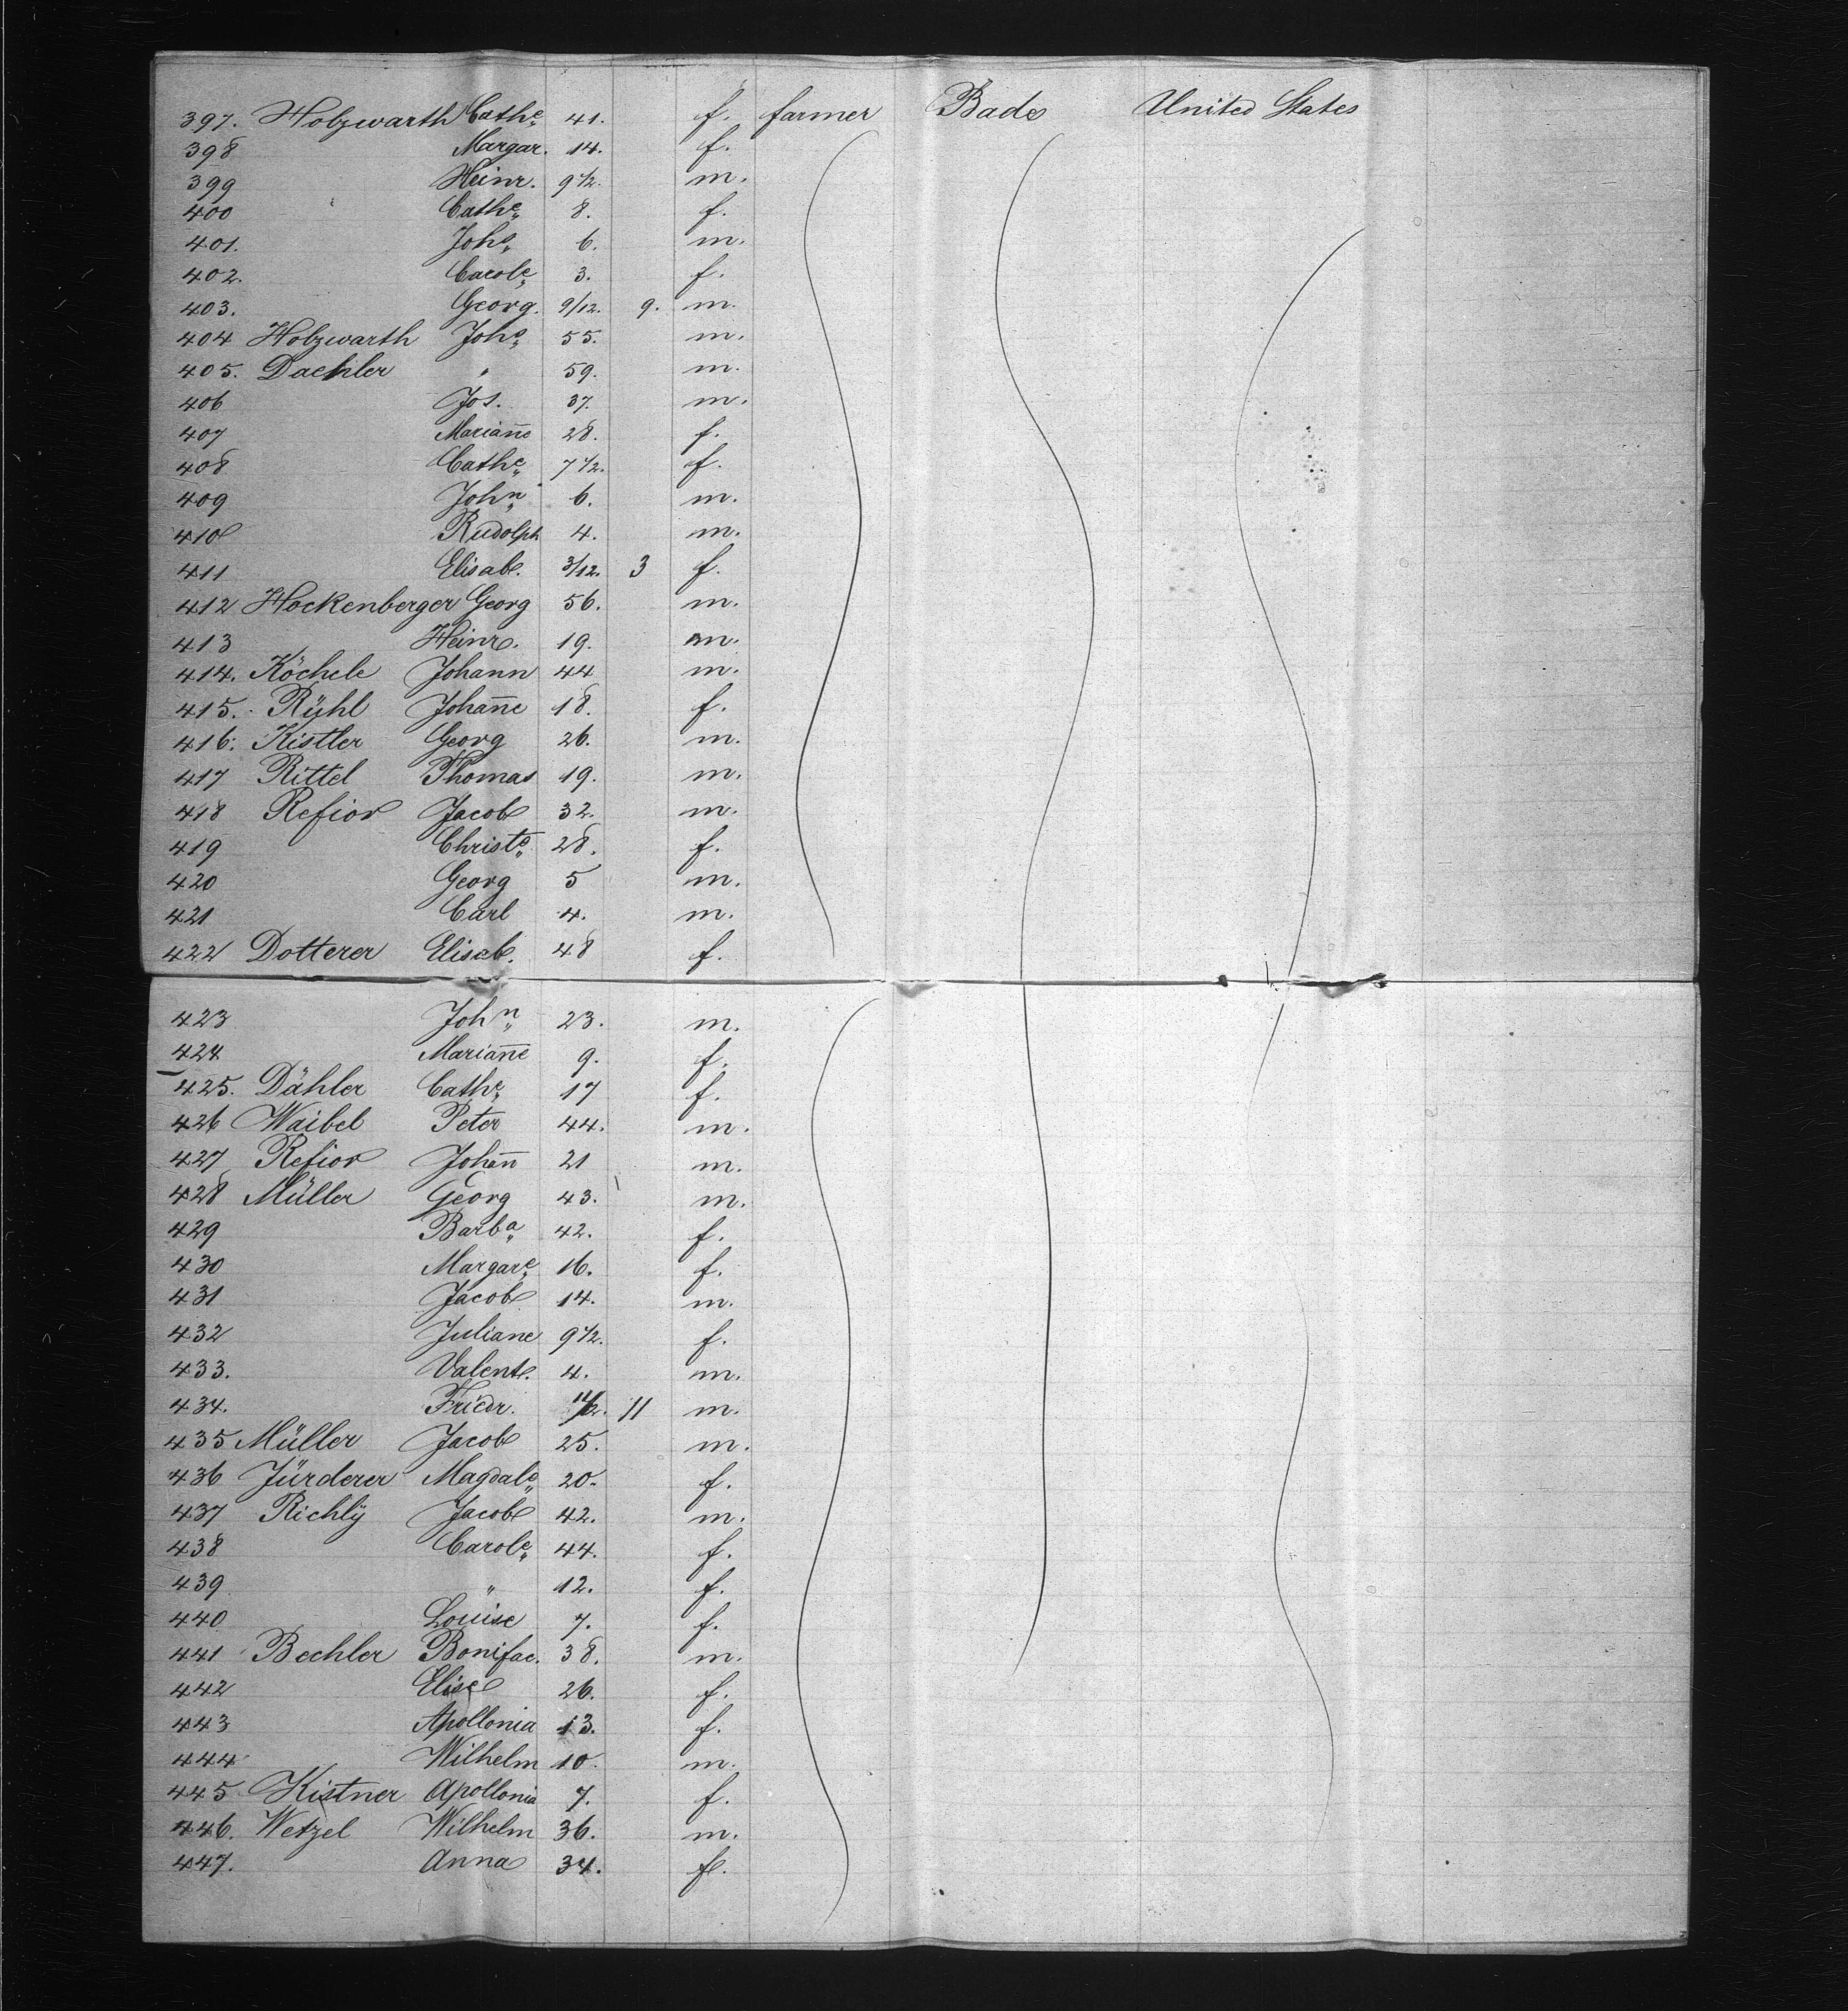 397. Holzwarth Cathe. 41. f. farmer Bade United States
398 Margar. 14. f.
399 Heinr. 9 1/2. m.
400 Cathe. 8. f.
401. Johs. 6. m.
402. Carole. 3. f.
403. Georg. 9/12. 9. m.
404 Holzwarth Johs. 55. m.
405. Daehler " 59. m.
406 Jos. 37. m.
407 Marian̄e 28. f.
408 Cathe. 7 1/2. f.
409 John 6. m.
410 Rudolph 4. m.
411 Elisab. 3/12. 3 f.
412 Hockenberger Georg 56. m.
413 Heinr. 19. m.
414. Köchele Johann 44 m.
415. Rÿhl Johan̄e 18. f.
416. Kistler Georg 26. m.
417 Rittel Thomas 19. m.
418 Refior Jacob 32. m.
419 Christe. 28. f.
420 Georg 5 m.
421 Carl 4. m.
422 Dotterer Elisab. 48 f.
423 John 23. m.
424 Marian̄e 9. f.
425. Dähler Cathe. 17 f.
426 Waibel Peter 44. m.
427 Refior Johan̄ 21 m.
428 Müller Georg 43. m.
429 Barba 42. f.
430 Margare. 16. f.
431 Jacob 14. m.
432 Juliane 9 1/2. f.
433. Valent. 4. m.
434. Friedr. 11/12. 11 m.
435 Müller Jacob 25. m.
436 Jürderer Magdale. 20. f.
437 Richlÿ Jacob 42. m.
438 Carole. 44. f.
439 " 12. f.
440 Louise 7. f.
441 Bechler Bonifac. 38. m.
442 Elise 26. f.
443 Apollonia 13. f.
444 Wilhelm 10. m.
445 Kistner Apollonia 7. f.
446. Wetzel Wilhelm 36. m.
447. Anna 34. f.